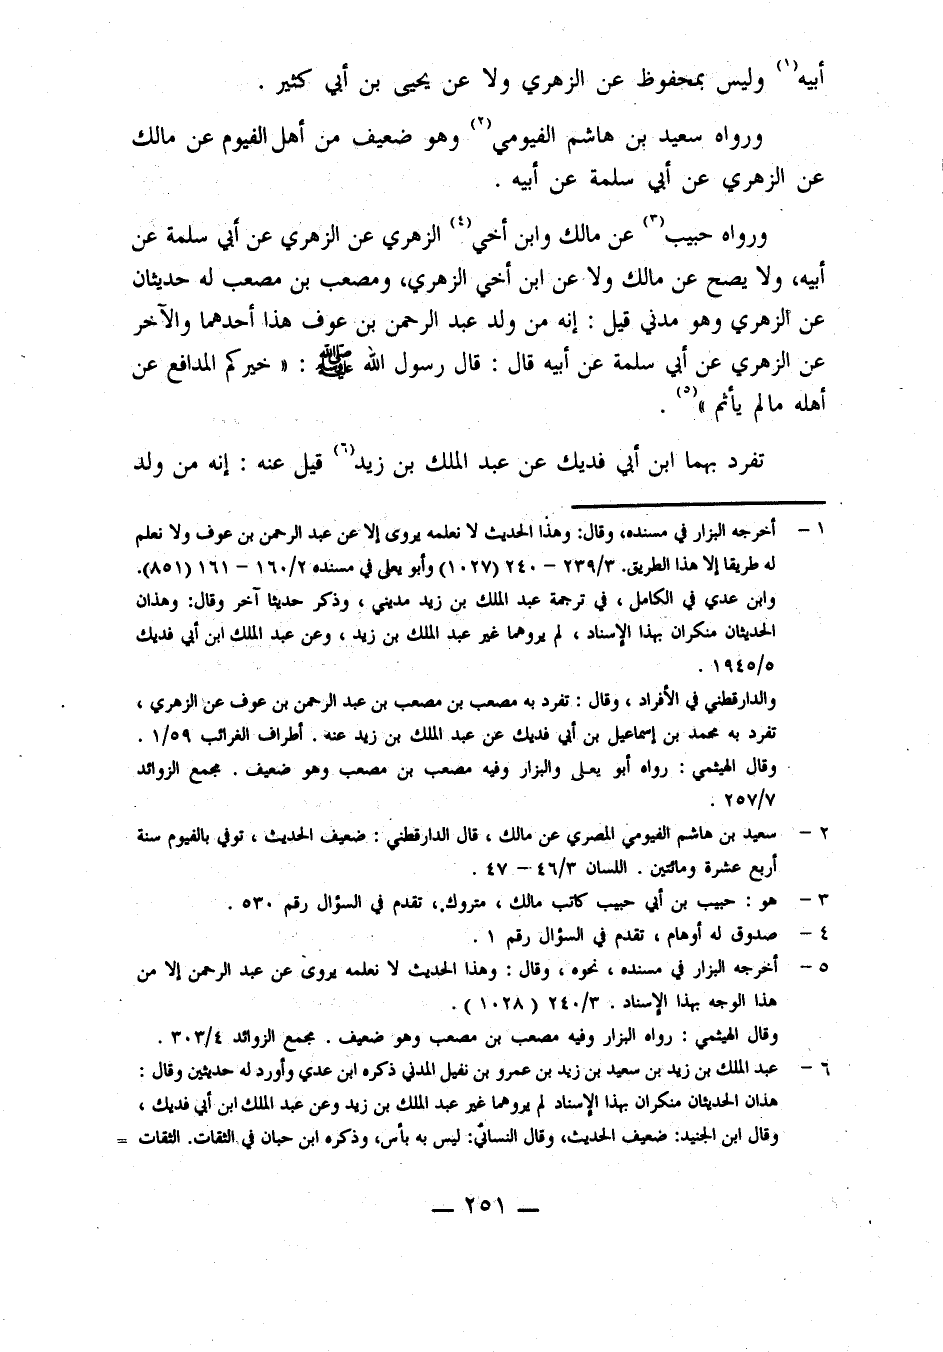 أبيه(١) وليس بمحفوظ عن الزهري ولا عن يحيى بن أبي كثير .
ورواه سعيد بن هاشم الفيومي(٢) وهو ضعيف من أهل الفيوم عن مالك
عن الزهري عن أبي سلمة عن أبيه .
ورواه حبيب(٣) عن مالك وابن أخي(٤) الزهري عن الزهري عن أبي سلمة عن
أبيه، ولا يصح عن مالك ولا عن ابن أخي الزهري، ومصعب بن مصعب له حديثان
عن الزهري وهو مدني قيل : إنه من ولد عبد الرحمن بن عوف هذا أحدهما والآخر
عن الزهري عن أبي سلمة عن أبيه قال : قال رسول الله ﷺ : « خيركم المدافع عن
أهله مالم يأثم »(٥) .
تفرد بهما ابن أبي فديك عن عبد الملك بن زيد(٦) قيل عنه : إنه من ولد
١ – أخرجه البزار في مسنده، وقال: وهذا الحديث لا نعلمه يروى إلا عن عبد الرحمن بن عوف ولا نعلم
له طريقا إلا هذا الطريق. ٢٣٩/٣ – ٢٤٠ (١٠٢٧) وأبو يعلى في مسنده ١٦٠/٢ – ١٦١ (٨٥١).
وابن عدي في الكامل ، في ترجمة عبد الملك بن زيد مديني ، وذكر حديثا آخر وقال: وهذان
الحديثان منكران بهذا الإسناد ، لم يروهما غير عبد الملك بن زيد ، وعن عبد الملك ابن أبي فديك
١٩٤٥/٥ .
والدارقطني في الأفراد ، وقال : تفرد به مصعب بن مصعب بن عبد الرحمن بن عوف عن الزهري ،
تفرد به محمد بن إسماعيل بن أبي فديك عن عبد الملك بن زيد عنه . أطراف الغرائب ١/٥٩ .
وقال الهيثمي : رواه أبو يعلى والبزار وفيه مصعب بن مصعب وهو ضعيف . مجمع الزوائد
٢٥٧/٧ .
٢ – سعيد بن هاشم الفيومي المصري عن مالك ، قال الدارقطني : ضعيف الحديث ، توفي بالفيوم سنة
أربع عشرة ومائتين . اللسان ٤٦/٣ – ٤٧ .
٣ – هو : حبيب بن أبي حبيب كاتب مالك ، متروك، تقدم في السؤال رقم ٥٣٠ .
٤ – صدوق له أوهام ، تقدم في السؤال رقم ١ .
٥ – أخرجه البزار في مسنده ، نحوه ، وقال : وهذا الحديث لا نعلمه يروى عن عبد الرحمن إلا من
هذا الوجه بهذا الإسناد . ٢٤٠/٣ ( ١٠٢٨ ) .
وقال الهيثمي : رواه البزار وفيه مصعب بن مصعب وهو ضعيف . مجمع الزوائد ٣٠٣/٤ .
٦ – عبد الملك بن زيد بن سعيد بن زيد بن عمرو بن نفيل المدني ذكره ابن عدي وأورد له حديثين وقال :
هذان الحديثان منكران بهذا الإسناد لم يروهما غير عبد الملك بن زيد وعن عبد الملك ابن أبي فديك ،
وقال ابن الجنيد: ضعيف الحديث، وقال النسائي: ليس به بأس، وذكره ابن حبان في الثقات. الثقات =
— ٢٥١ —